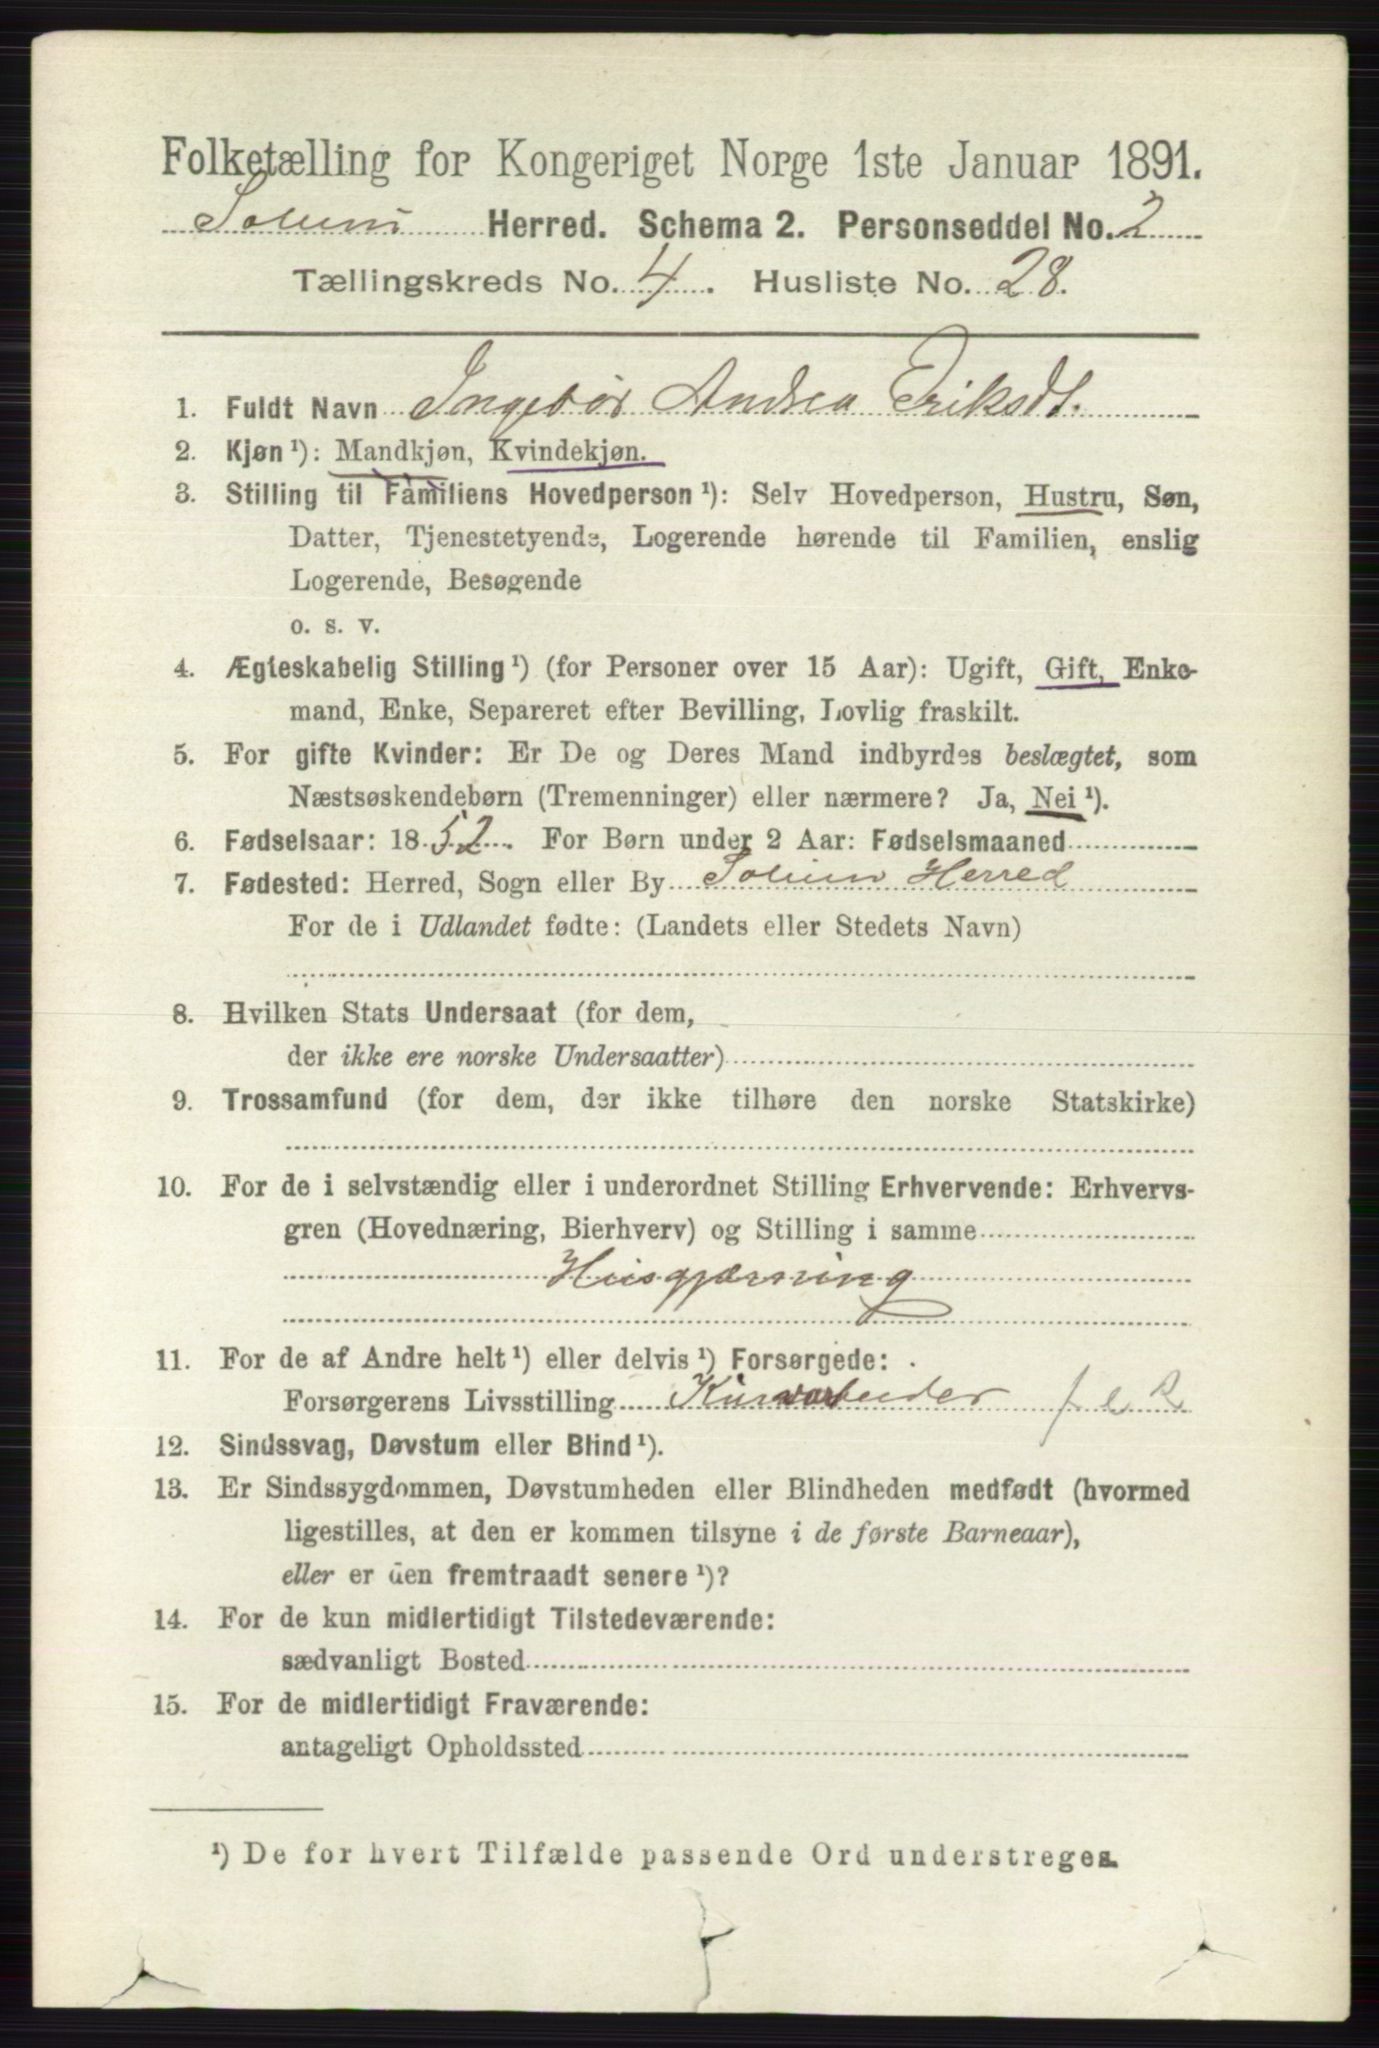 Folketælling for Kongeriget Norge 1ste Januar 1891.
Solum Herred. Schema 2. Personseddel No. 2
Tællingskreds No. 4. Husliste No. 28.
1. Fuldt Navn Ingebør Andrea Eriksdt.
2. Kjøn¹): Mandkjøn, Kvindekjøn.
3. Stilling til Familiens Hovedperson¹): Selv Hovedperson, Hustru, Søn,
Datter, Tjenestetyende, Logerende hørende til Familien, enslig
Logerende, Besøgende
o. s. v.
4. Ægteskabelig Stilling¹) (for Personer over 15 Aar): Ugift, Gift, Enke-
mand, Enke, Separeret efter Bevilling, Lovlig fraskilt.
5. For gifte Kvinder: Er De og Deres Mand indbyrdes beslægtet, som
Næstsøskendebørn (Tremenninger) eller nærmere? Ja, Nei¹).
6. Fødselsaar: 1852. For Børn under 2 Aar: Fødselsmaaned
7. Fødested: Herred, Sogn eller By Solum Herred
For de i Udlandet fødte: (Landets eller Stedets Navn)
8. Hvilken Stats Undersaat (for dem,
der ikke ere norske Undersaatter)
9. Trossamfund (for dem, der ikke tilhøre den norske Statskirke)
10. For de i selvstændig eller i underordnet Stilling Erhvervende: Erhvervs-
gren (Hovednæring, Bierhverv) og Stilling i samme
Husgjærning
11. For de af Andre helt¹) eller delvis¹) Forsørgede:
Forsørgerens Livsstilling
12. Sindssvag, Døvstum eller Blind¹).
13. Er Sindssygdommen, Døvstumheden eller Blindheden medfødt (hvormed
ligestilles, at den er kommen tilsyne i de første Barneaar),
eller er den fremtraadt senere¹)?
14. For de kun midlertidigt Tilstedeværende:
sædvanligt Bosted
15. For de midlertidigt Fraværende:
antageligt Opholdssted
¹) De for hvert Tilfælde passende Ord understreges.